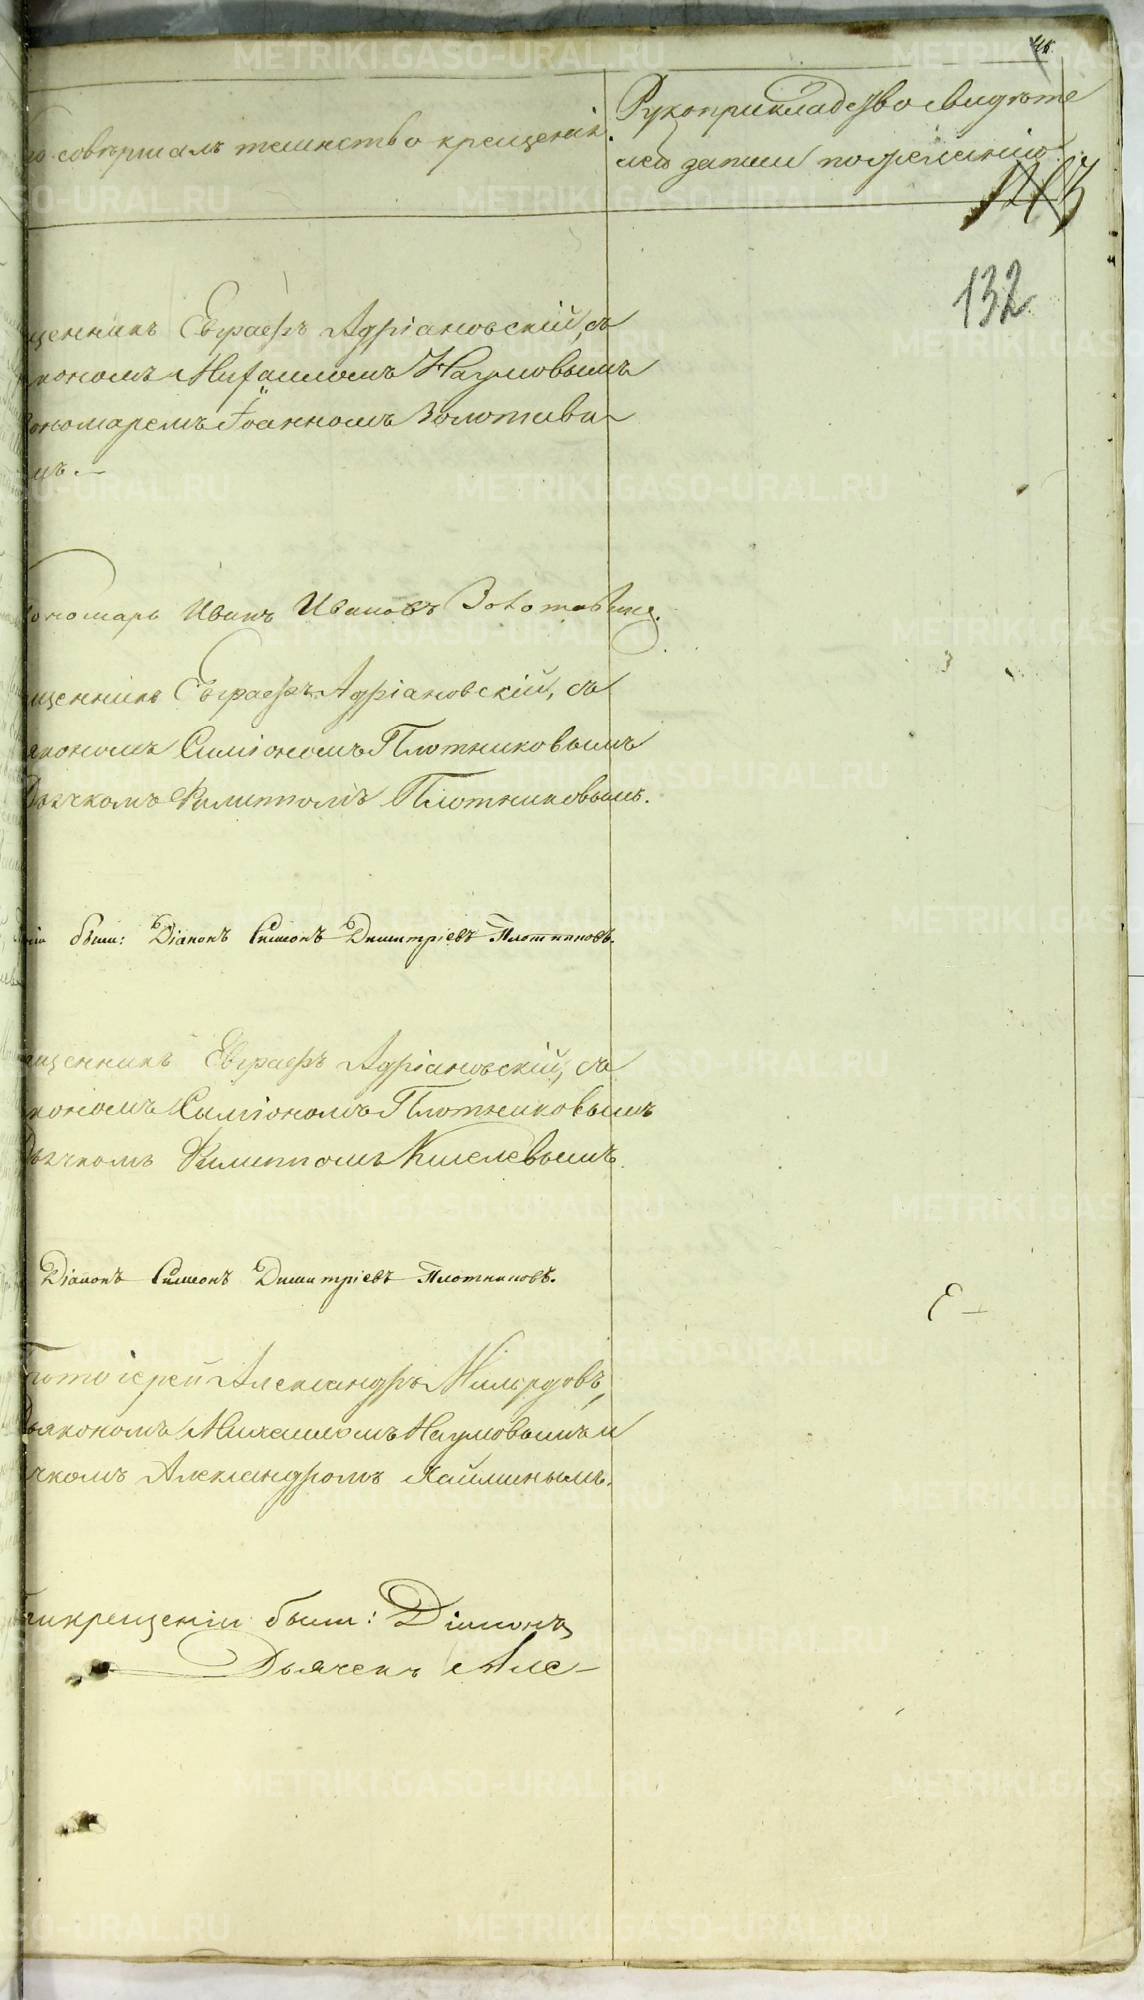 совершалъ таинство крещенія.
Рукоприкладство свидѣте
лей записи по желанію.
132
щенникъ Евграфъ Адріановскій, съ
кономъ Михаиломъ Наумовымъ
ономаремъ Іоанномъ Золотави-
мъ.—
ономарь Иванъ Ивановъ Золотавинъ.
щенникъ Евграфъ Адріановскій, съ
якономъ Симіономъ Плотниковымъ
Дьячкомъ Филиппомъ Плотниковымъ.
ніи были: Діаконъ Симеонъ Димитріевъ Плотниковъ.
щенникъ Евграфъ Адріановскій, съ
кономъ Симіономъ Плотниковымъ
Дьячкомъ Филиппомъ Киселевымъ.
Діаконъ Симеонъ Димитріевъ Плотниковъ.
тоіерей Александръ Милордовъ,
Дьякономъ Михаиломъ Наумовымъ и
чкомъ Александромъ Хайминымъ.
прикрещеніи были: Діаконъ
Дьячекъ Але-
METRIKI.GASO-URAL.RU